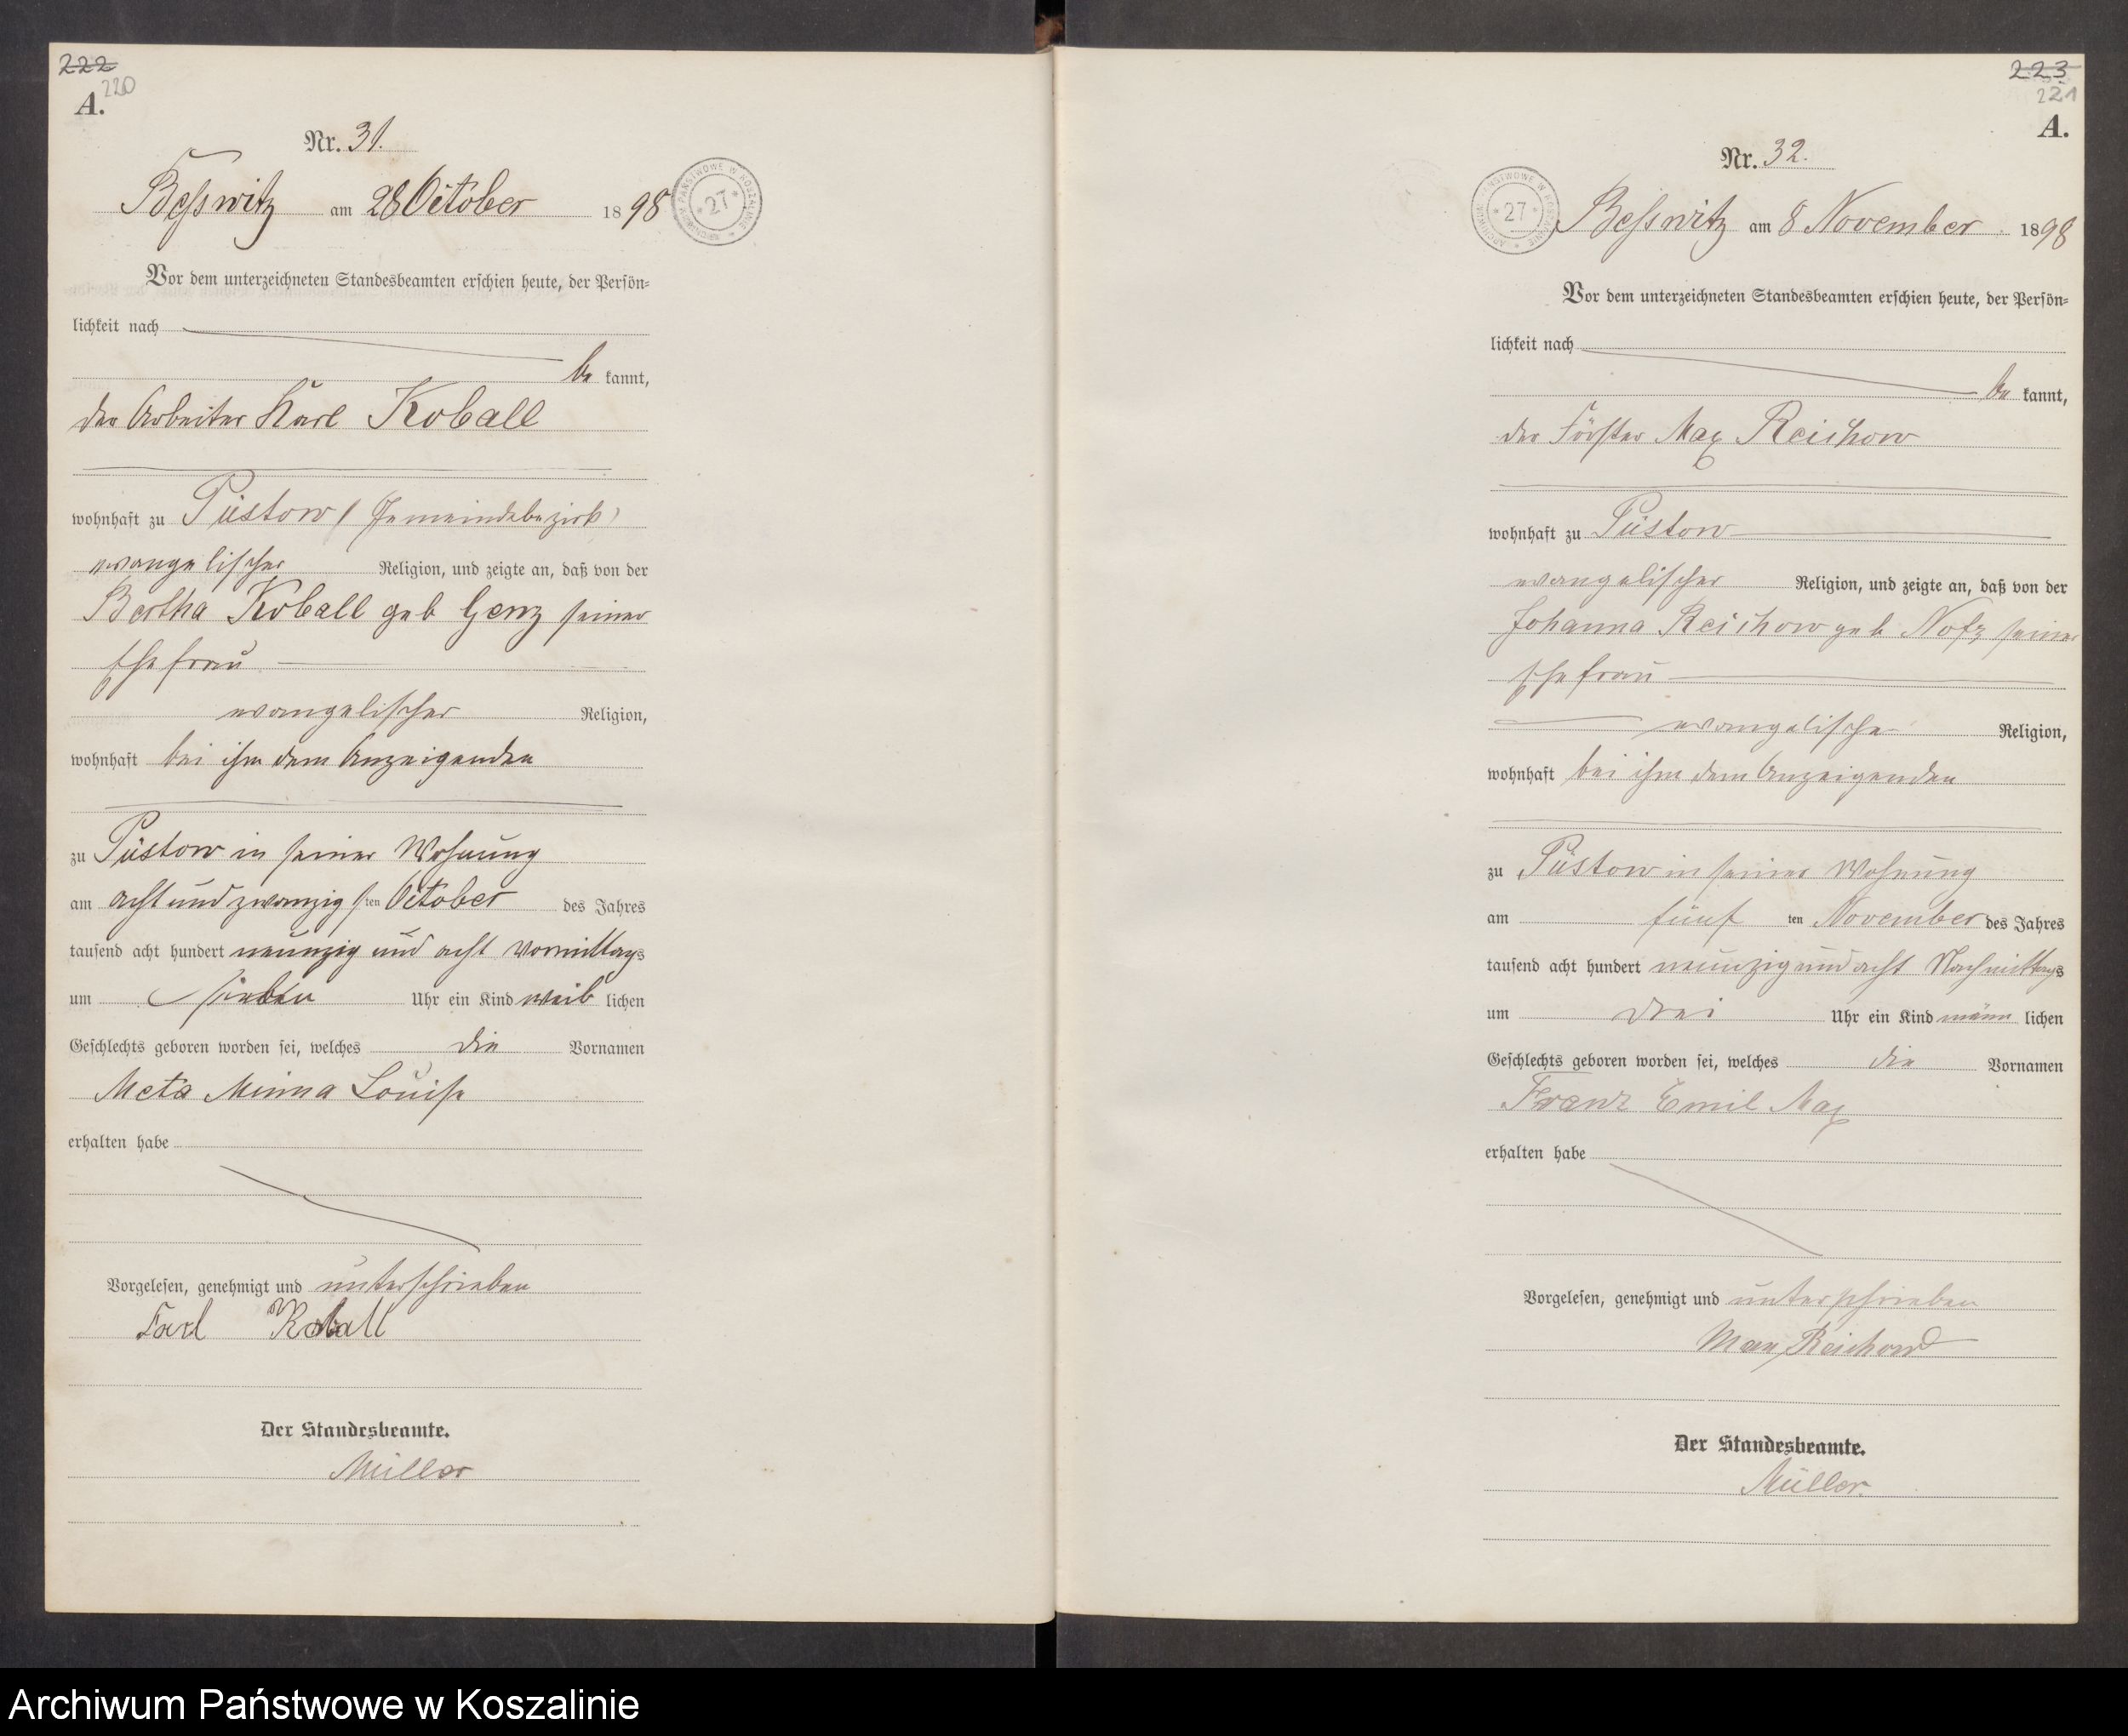 222
220
A.
Nr. 31.
Beßwitz am 28 October 1898
ARCHIWUM PAŃSTWOWE W KOSZALINIE * 27 *
Vor dem unterzeichneten Standesbeamten erschien heute, der Persön-
lichkeit nach
be kannt,
der Arbeiter Karl Koball
wohnhaft zu Püstow (Gemeindebezirk)
evangelischer Religion, und zeigte an, daß von der
Bertha Koball geb Genz seiner
Ehefrau
evangelischer Religion,
wohnhaft bei ihm dem Anzeigenden
zu Püstow in seiner Wohnung
am acht und zwanzigsten October des Jahres
tausend acht hundert neunzig und acht Vormittags
um sieben Uhr ein Kind weiblichen
Geschlechts geboren worden sei, welches die Vornamen
Meta Minna Louise
erhalten habe
Vorgelesen, genehmigt und unterschrieben
Karl Koball
Der Standesbeamte.
Müller
223
221
A.
Nr. 32.
ARCHIWUM PAŃSTWOWE W KOSZALINIE * 27 *
Beßwitz am 8 November 1898
Vor dem unterzeichneten Standesbeamten erschien heute, der Persön-
lichkeit nach
be kannt,
der Förster Max Reichow
wohnhaft zu Püstow
evangelischer Religion, und zeigte an, daß von der
Johanna Reichow geb seiner
Ehefrau
evangelische Religion,
wohnhaft bei ihm dem Anzeigenden
zu Püstow in seiner Wohnung
am fünf ten November des Jahres
tausend acht hundert neunzig und acht Nachmittags
um drei Uhr ein Kind männlichen
Geschlechts geboren worden sei, welches die Vornamen
Franz Emil Max
erhalten habe
Vorgelesen, genehmigt und unterschrieben
Max Reichow
Der Standesbeamte.
Müller.
Archiwum Państwowe w Koszalinie